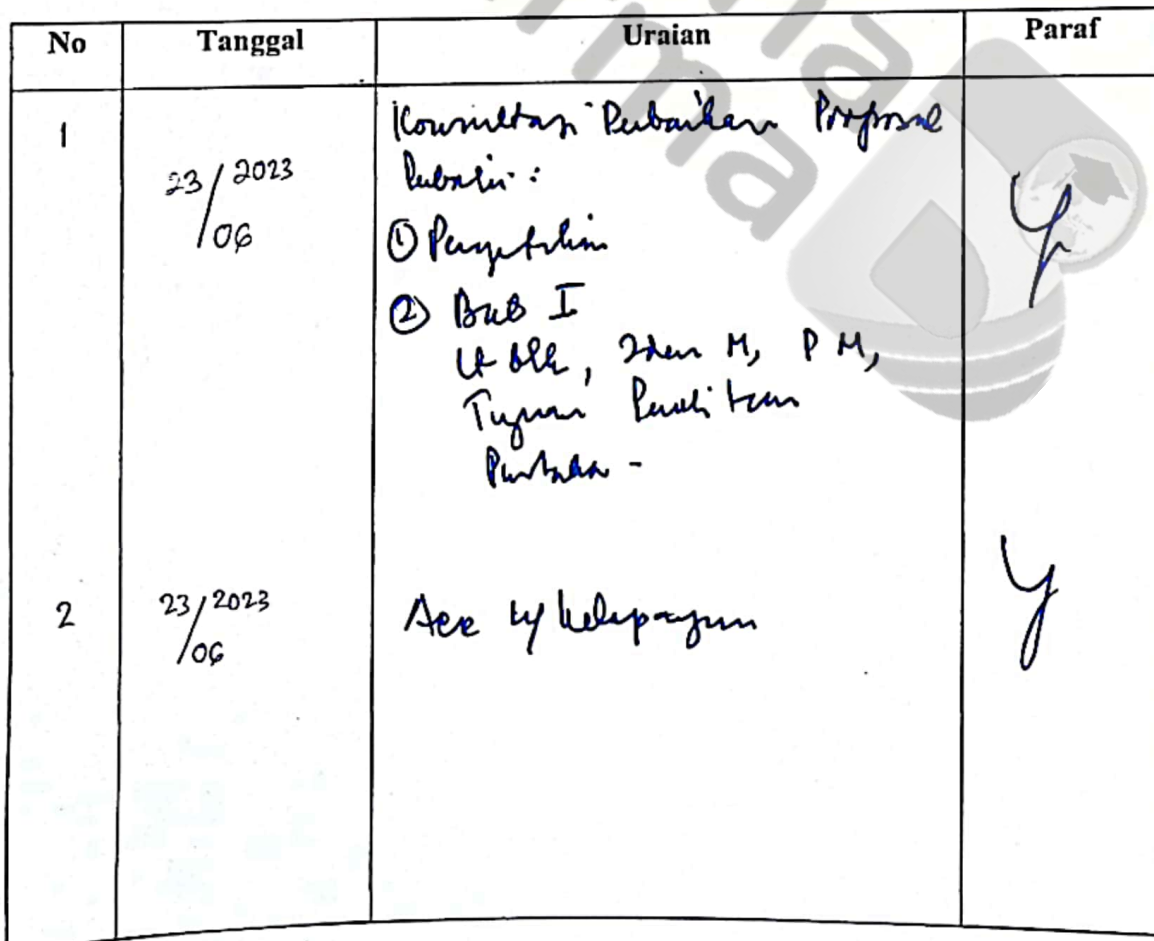 No Tanggal Uraian Paraf
1
23/06 2023
Konsultasi Perbaikan Proposal
Perbaiki :
① Pengetikan
② Bab I
Lt Blk, Iden M, P M,
Tujuan Penelitian
Pustaka -
2
23/06 2023
Acc